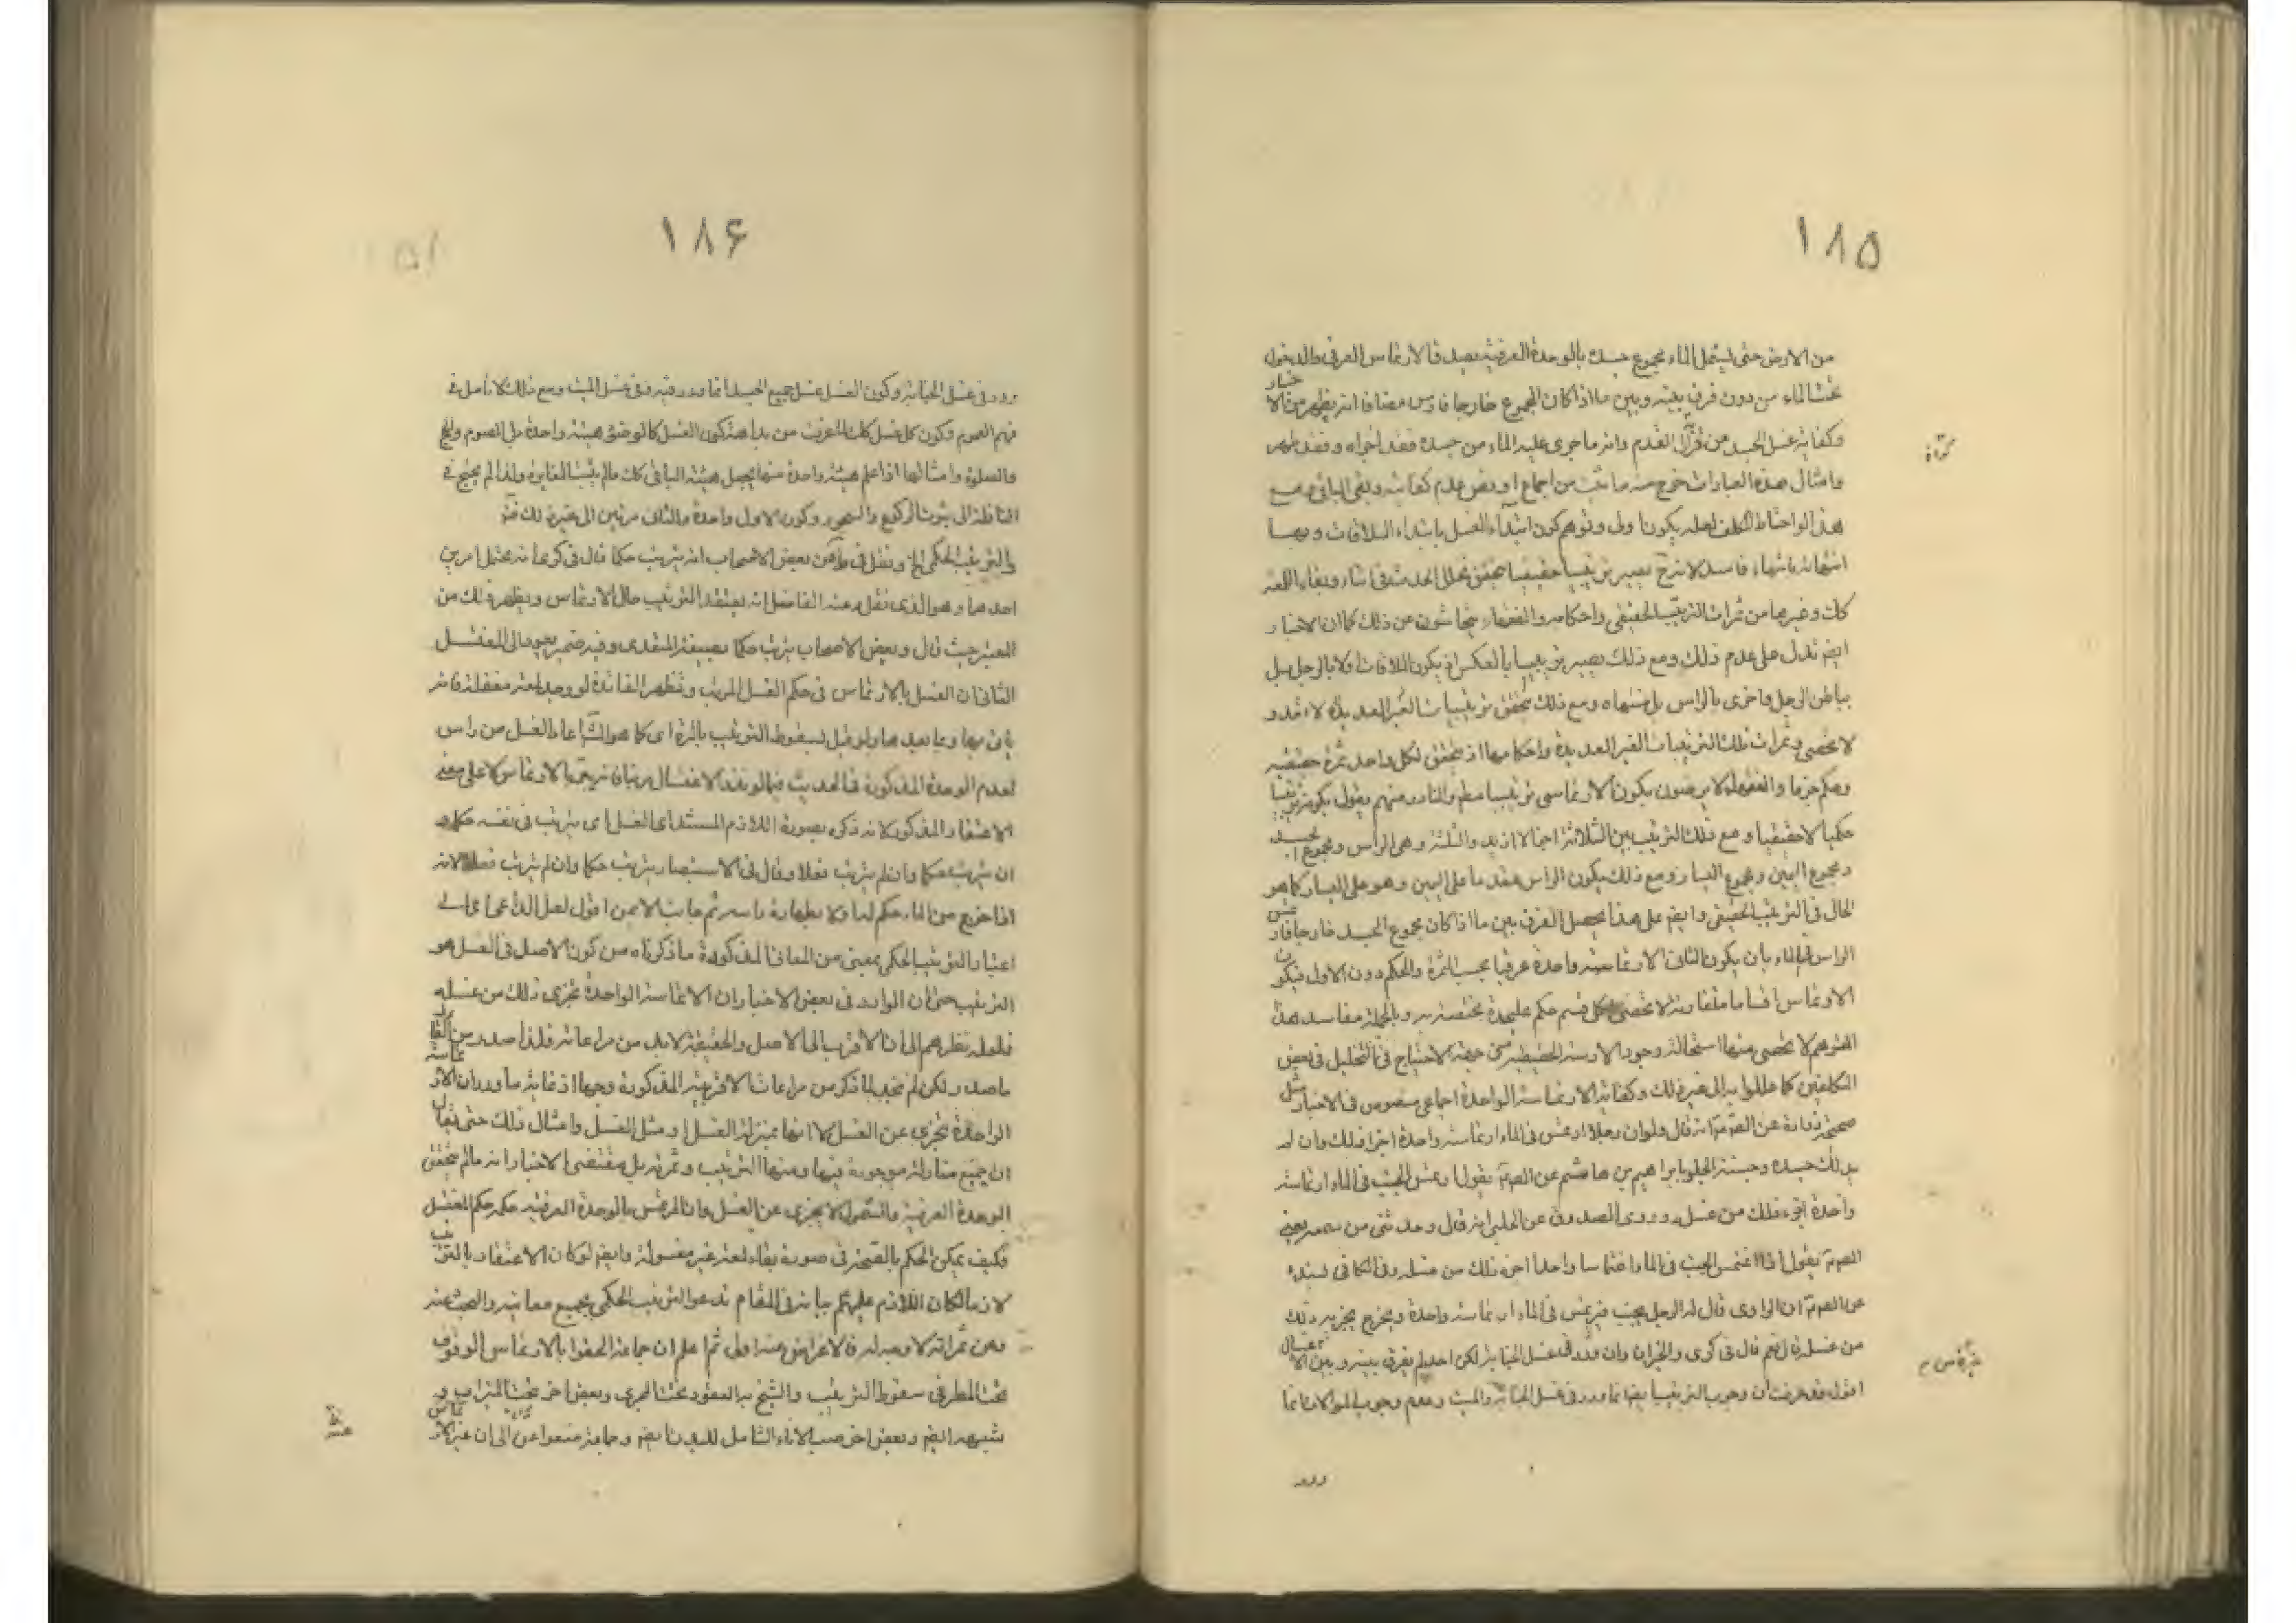 ۱۸۵
من الارض حتى يشتمل الماء مجموع جسده بالوحدة العرفية يصدق الارتماس العرفي والدخول
تحت الماء من دون فرق بينه وبين ما اذا كان المجموع خارجا فارتمس مضافا انه يظهر من الاخبار
وكفاية غسل الجسد من قرنه الى القدم وانه ما جرى عليه الماء من جسده فقد اجزاه وفقد طهر
وامثال هذه العبارات خرج منه ما ثبت من اجماع او نص عدم كفايته وبقي الباقي ومع
هذا لو احتاط المكلف لعله يكون اولى وتوهم كون ابتداء الغسل بابتداء الملاقات و
انتهائه بانتهاء فاسد لانه ح يصير ترتيبيا حقيقيا يتحقق تخلل الحدث في اثناء وبقاء اللمعة
كك وغيرها من ثمرات الترتيب الحقيقي واحكامه والفقهاء يتحاشون عن ذلك كما ان الاخبار
ايضا تدل على عدم ذلك ومع ذلك يصير ترتيبيا بالعكس اذ يكون الملاقات اولا بالرجل بل
بباطن الرجل واخرى بالراس بل منتهاه ومع ذلك يتحقق ترتيبيات الغير العديدة لا تعد و
لا تحصى وثمرات تلك الترتيبات الغير العديدة واحكامها اذ يتحقق لكل واحد ثمرة حقيقية
وحكم جزما والفقهاء لا يرضون بكون الارتماسي ترتيبيا مطلقا والنادر منهم يقول بكونه ترتيبيا
حكميا لا حقيقيا ومع ذلك الترتيب بين الثلاثة اجمالا ازيد والثلثة وهي الراس ومجموع الجسد
ومجموع اليمين ومجموع اليسار ومع ذلك يكون الراس مقدما على اليمين وهو على اليسار كما هو
الحال في الترتيب الحقيقي وايضا على هذا يحصل الفرق بين ما اذا كان مجموع الجسد خارجا فارتمس
الراس في الماء بان يكون الثاني الارتماسة واحدة عرفيا بحسب الثمرة والحكم دون الاول فيكون
الارتماس اقساما متفاوتة لا تحصى لكل قسم حكم عليحدة مختصة به وبالجملة مفاسد هذا
التوهم لا تحصى منها استحالة وجود الارتماسة الحقيقية من جهة الاحتياج الى التخليل في بعض
المكلفين كما عللوا به الى غير ذلك وكفاية الارتماسة الواحدة اجماعي منصوص في الاخبار مثل
صحيحة زرارة عن الصادق انه قال ولو ان رجلا ارتمس في الماء ارتماسة واحدة اجزاه ذلك وان لم
يدلك جسده وحسنة الحلبي بابراهيم بن هاشم عن الصادق يقول اذا ارتمس الجنب في الماء ارتماسة
واحدة اجزاه ذلك من غسله وروى الصدوق عن الحلبي انه قال وحدثني من سمعه يعني
الصادق يقول اذا اغتمس الجنب في الماء اغتماسا واحدا اجزاه ذلك من غسله وفي الكافي بسنده
عن الصادق ان الراوي قال له الرجل يجنب فيرتمس في الماء ارتماسة واحدة ويخرج يجزيه ذلك
من غسله قال نعم قال في كرى والخبران وان وردا في غسل الجنابة لكن احد لم يفرق بينه وبين الاغسال
اقول قد عرفت ان وجوب الترتيب ايضا انما ورد في غسل الجنابة والميت وعدم وجوب الموالات انما
ورد
۱۸۶
ورد في غسل الجنابة وكون الغسل غسل جميع الجسد انما ورد فيه وفي غسل الميت ومع ذلك لا تأمل في
فهم العموم وكون كل غسل كك لما عرفت من بداهة كون الغسل كالوضوء هيئة واحدة مثل الصوم والحج
والصلوة وامثالها اذا علم هيئة واحدة منها يجعل هيئة الباقي كك مالم يثبت المغايرة ولذا لم يحتج في
النافلة الى ثبوت الركوع والسجود وكون الاول واحدة والثاني مرتين الى غير ذلك
والترتيب الحكمي الخ ونقل في ط عن بعض الاصحاب انه يترتب حكما قال في كرى انه يحتمل امرين
احدهما وهو الذي نقله عنه الفاضل انه يعتقد الترتيب حال الارتماس ويظهر ذلك من
المعتبر حيث قال وبعض الاصحاب يرتب حكما بصيغة المتعدي وفيه ضمير يعود الى المغتسل
الثاني ان الغسل بالارتماس في حكم الغسل المرتب وتظهر الفائدة لو وجد لمعة مغفلة فانه
ياتي بها وبما بعدها ولو قيل بسقوط الترتيب بالمرة اي كما هو اعاد الغسل من راس
لعدم الوحدة المذكورة في الحديث وفيما لو نذر الاغتسال مرتبا فانه يبرء بالارتماس لا على معنى
الاعتقاد المذكور لانه ذكره بصورة اللازم المستند الى الغسل اي يترتب في نفسه حكما و
ان يترتب حكما وان لم يترتب فعلا وقال في الاستبصار يترتب حكما وان لم يترتب فعلا لانه
اذا خرج من الماء حكم له اولا بطهارة راسه ثم جانبه الايمن اقول لعل الداعي الى
اعتبار الترتيب الحكمي بمعنى من المعاني المذكورة ما ذكرناه من كون الاصل في الغسل هو
الترتيب حتى ان الوارد في بعض الاخبار ان الارتماسة الواحدة تجزي ذلك من غسله
فلعله نظرهم الى ان الاقرب الى الاصل والحقيقة لابد من مراعاته فلذا صدر من القائل
ما صدر ولكن لم نجد لما ذكر من مراعات الاقربية المذكورة وجها اذ غاية ما ورد ان الارتماسة
الواحدة تجزي عن الغسل لا انها بمنزلة الغسل او مثل الغسل وامثال ذلك حتى يقال
ان جميع منازله موجودة فيها ومنها الترتيب وثمرته بل مقتضى الاخبار انه مالم يتحقق
الوحدة العرفية والشمول لا يجزي عن الغسل وان المرتمس بالوحدة العرفية حكمه حكم المغتسل
فكيف يمكن الحكم بالصحة في صورة بقاء لمعة غير مغسولة وايضا لو كان الاعتقاد بالترتيب
لازما لكان اللازم عليهم بيانه في المقام ثم دعوى الترتيب الحكمي بجميع معانيه والبحث عنه
وعن ثمراته لا وجه له فالاعراض عنه اولى ثم اعلم ان جماعة الحقوا بالارتماس الوقوف
تحت المطر في سقوط الترتيب والشيخ به القعود تحت المجرى وبعض اخر تحت الميزاب و
شبهه ايضا وبعض اخر صب الاناء الشامل للبدن ايضا وجماعة منعوا عن الحاق غير الارتماس